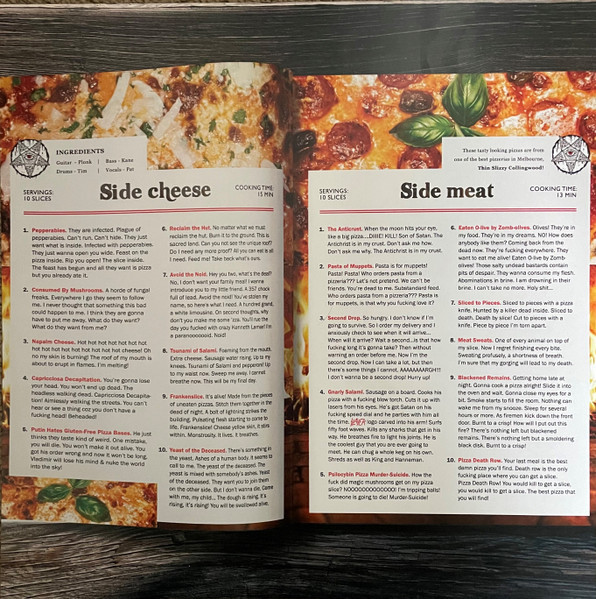 INGREDIENTS
Guitar - Plonk | Bass - Kane
Drums - Tim | Vocals - Fat
SERVINGS:
10 SLICES
Side cheese
COOKING TIME:
13 MIN
1. Pepperabies. They are infected. Plague of
pepperabies. Can't run. Can't hide. They just
want what is inside. Infected with pepperabies.
They just wanna open you wide. Feast on the
pizza inside. Rip you open! The slice inside.
The feast has begun and all they want is pizza
but you already ate it.
2. Consumed By Mushrooms. A horde of fungal
freaks. Everywhere I go they seem to follow
me. I never thought that something this bad
could happen to me. I think they are gonna
have to put me away. What do they want?
What do they want from me?
3. Napalm Cheese. Hot hot hot hot hot hot hot
hot hot hot hot hot hot hot hot hot cheese! Oh
no my skin is burning! The roof of my mouth is
about to erupt in flames. I'm melting!
4. Capricciosa Decapitation. You're gonna lose
your head. You won't end up dead. The
headless walking dead. Capricciosa Decapita-
tion! Aimlessly walking the streets. You can't
hear or see a thing coz you don't have a
fucking head! Beheaded!!
5. Putin Hates Gluten-Free Pizza Bases. He just
thinks they taste kind of weird. One mistake,
you will die. You won't make it out alive. You
got his order wrong and now it won't be long.
Vladimir will lose his mind & nuke the world
into the sky!
6. Reclaim the Hut. No matter what we must
reclaim the hut. Burn it to the ground. This is
sacred land. Can you not see the unique roof?
Do I need any more proof? All you can eat is all
I need. Feed me! Take back what's ours.
7. Avoid the Noid. Hey you two, what's the deal?
No, I don't want your family meal! I wanna
introduce you to my little friend. A .357 chock
full of lead. Avoid the noid! You've stolen my
name, so here's what I need. A hundred grand,
a white limousine. On second thoughts, why
don't you make me some 'zza. You'll rue the
day you fucked with crazy Kenneth Lamar! I'm
a paranoooooood. Noid!
8. Tsunami of Salami. Foaming from the mouth.
Extra cheese. Sausage water rising. Up to my
knees. Tsunami of Salami and pepperoni! Up
to my waist now. Sweep me away. I cannot
breathe now. This will be my final day.
9. Frankenslice. It's alive! Made from the pieces
of uneaten pizzas. Stitch them together in the
dead of night. A bolt of lightning strikes the
building. Pulsating flesh starting to come to
life. Frankenslice! Cheese yellow skin, it stirs
within. Monstrosity. It lives. It breathes.
10. Yeast of the Deceased. There's something in
the yeast, Ashes of a human body. It seems to
call to me. The yeast of the deceased. The
yeast is mixed with somebody's ashes. Yeast
of the deceased. They want you to join them
on the other side. But I don't wanna die. Come
with me, my child... The dough is rising. It's
rising, it's rising! You will be swallowed alive.
These tasty looking pizzas are from
one of the best pizzerias in Melbourne,
Thin Slizzy Collingwood!
SERVINGS:
10 SLICES
Side meat
COOKING TIME:
13 MIN
1. The Anticrust. When the moon hits your eye,
like a big pizza....DIIIE! KILL! Son of Satan. The
Antichrist is in my crust. Don't ask me how.
Don't ask me why. The Antichrist is in my crust.
2. Pasta of Muppets. Pasta is for muppets!
Pasta! Pasta! Who orders pasta from a
pizzeria??? Let's not pretend. We can't be
friends. You're dead to me. Substandard feed.
Who orders pasta from a pizzeria??? Pasta is
for muppets, is that why you fucking love it?
3. Second Drop. So hungry. I don't know if I'm
going to survive. So I order my delivery and I
anxiously check to see when it will arrive...
When will it arrive? Wait a second...is that how
fucking long it's gonna take? Then without
warning an order before me. Now I'm the
second drop. Now I can take a lot, but then
there's some things I cannot. AAAAAAARGH!!!
I don't wanna be a second drop! Hurry up!
4. Gnarly Salami. Sausage on a board. Cooks his
pizza with a fucking blow torch. Cuts it up with
lasers from his eyes. He's got Satan on his
fucking speed dial and he parties with him all
the time. logo carved into his arm! Surfs
fifty foot waves. Kills any sharks that get in his
way. He breathes fire to light his joints. He is
the coolest guy that you are ever going to
meet. He can chug a whole keg on his own.
Shreds as well as King and Hanneman.
5. Psilocybin Pizza Murder-Suicide. How the
fuck did magic mushrooms get on my pizza
slice? NOOOOOOOOOOOO! I'm tripping balls!
Someone is going to die! Murder-Suicide!
6. Eaten O-live by Zomb-olives. Olives! They're in
my food. They're in my dreams. NO! How does
anybody like them? Coming back from the
dead now. They're fucking everywhere. They
want to eat me alive! Eaten O-live by Zomb-
olives! Those salty undead bastards contain
pits of despair. They wanna consume my flesh.
Abominations in brine. I am drowning in their
brine. I can take no more. Holy shit...
7. Sliced to Pieces. Sliced to pieces with a pizza
knife. Hunted by a killer dead inside. Sliced to
death. Death by slice! Cut to pieces with a
knife. Piece by piece I'm torn apart.
8. Meat Sweats. One of every animal on top of
my slice. Now I regret finishing every bite.
Sweating profusely, a shortness of breath.
I'm sure that my gorging will lead to my death.
9. Blackened Remains. Getting home late at
night. Gonna cook a pizza alright! Slide it into
the oven and wait. Gonna close my eyes for a
bit. Smoke starts to fill the room. Nothing can
wake me from my snooze. Sleep for several
hours or more. As firemen kick down the front
door. Burnt to a crisp! How will I put out this
fire? There's nothing left but blackened
remains. There's nothing left but a smoldering
black disk. Burnt to a crisp!
10. Pizza Death Row. Your last meal is the best
damn pizza you'll find. Death row is the only
fucking place where you can get a slice.
Pizza Death Row! You would kill to get a slice,
you would kill to get a slice. The best pizza that
you will find!